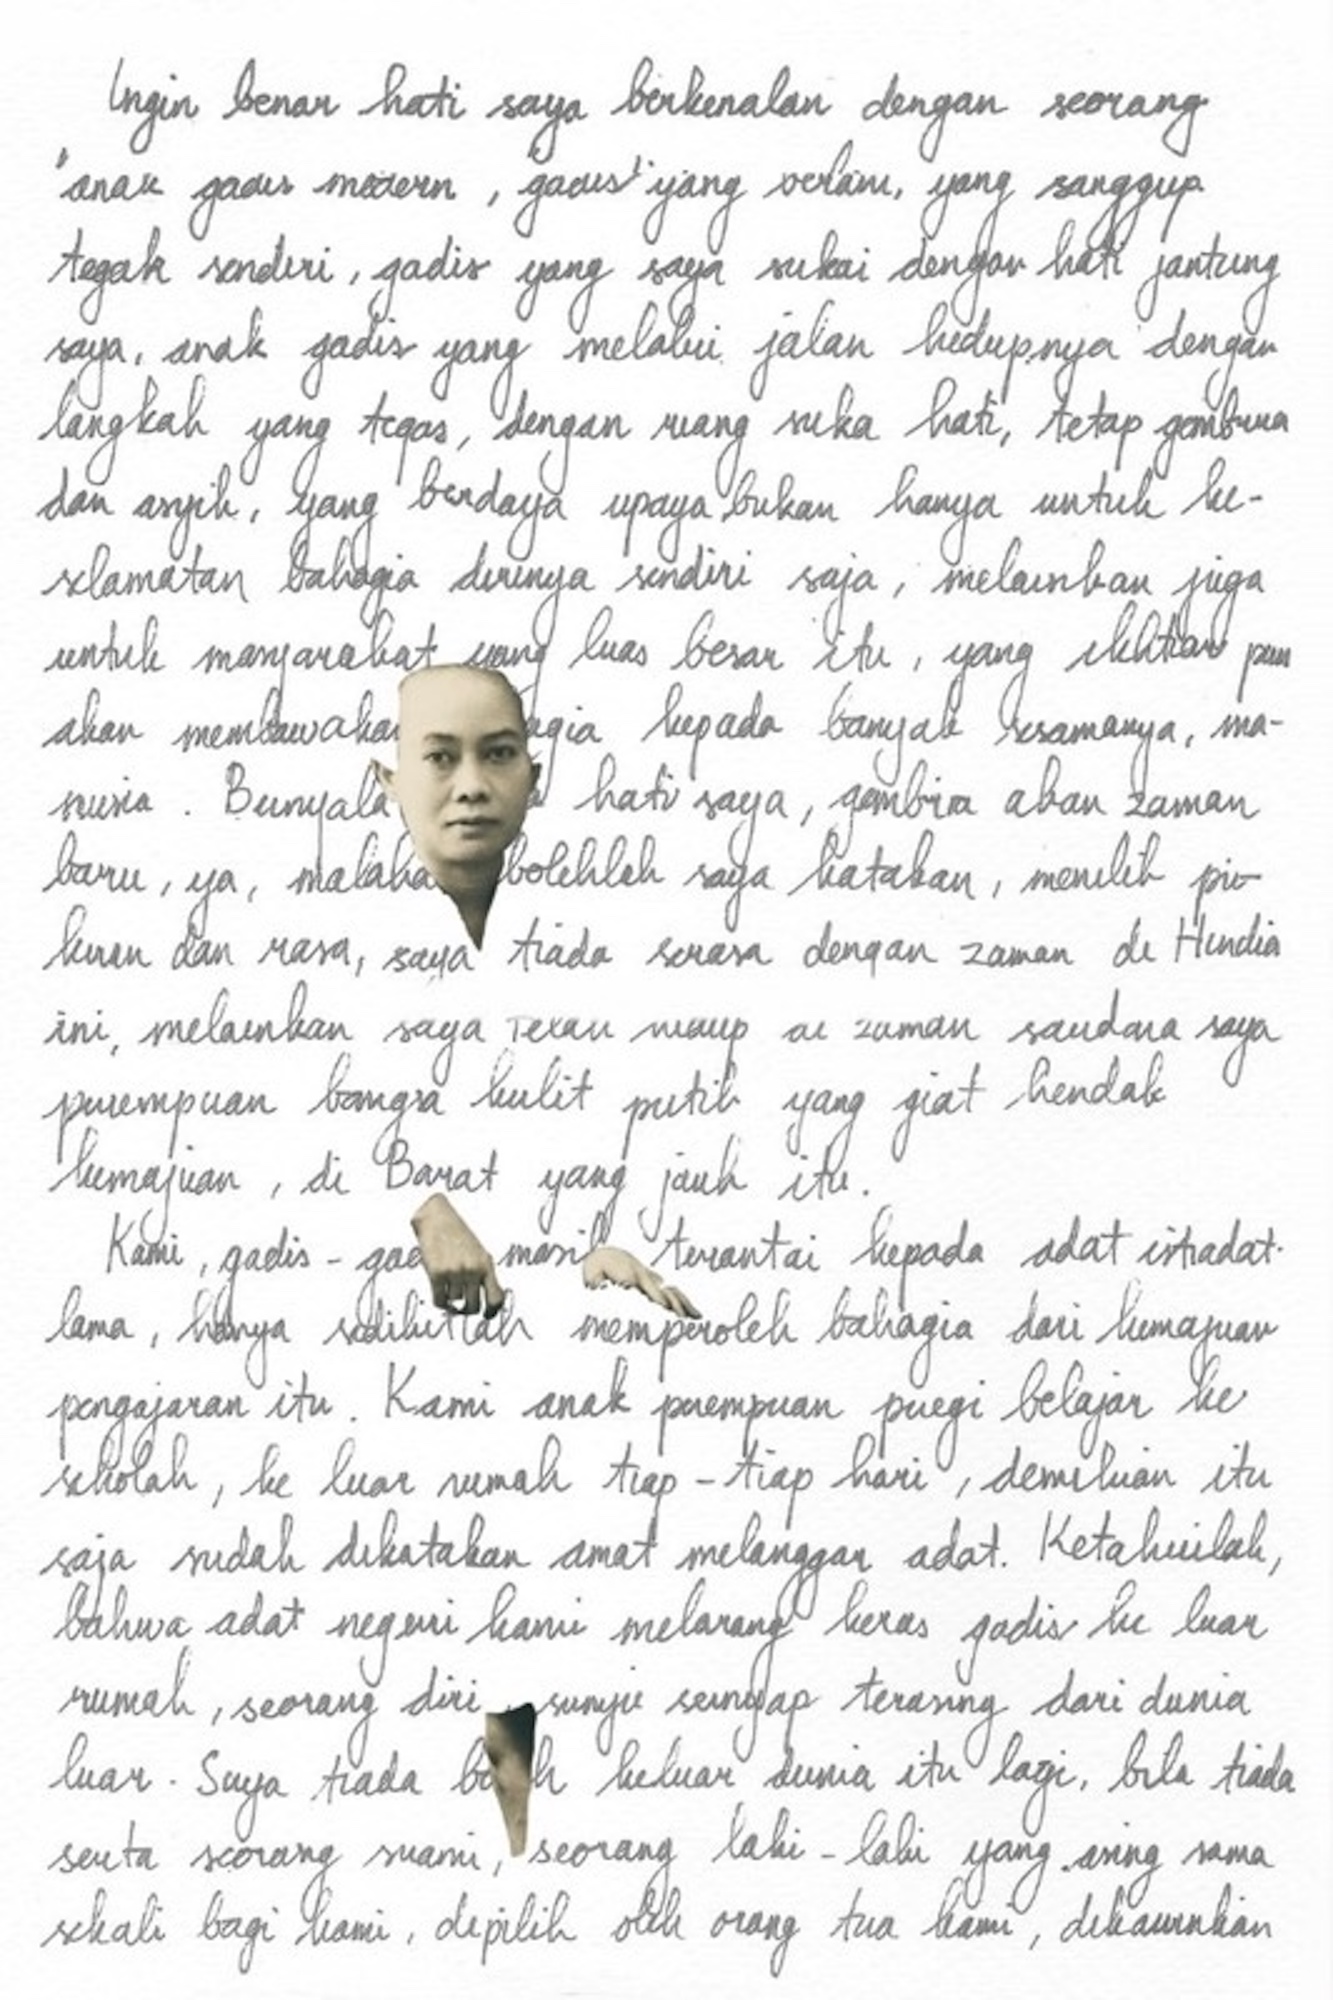 Ingin benar hati saya berkenalan dengan seorang
"anak gadis modern", gadis yang berani, yang sanggup
tegak sendiri, gadis yang saya sukai dengan hati jantung
saya, anak gadis yang melalui jalan hidupnya dengan
langkah yang tegas, dengan riang suka hati, tetap gembira
dan asyik, yang berdaya upaya bukan hanya untuk ke-
selamatan bahagia dirinya sendiri saja, melainkan juga
untuk masyarakat yang luas besar itu, yang ikhtiar pun
akan membawakan agia kepada banyak sesamanya, ma-
nusia. Bunyala hati saya, gembira akan zaman
baru, ya, malaha bolehlah saya katakan, menilih pi-
kiran dan rasa, saya tiada serasa dengan zaman di Hindia
ini, melainkan saya telah hidup di zaman saudara saya
perempuan bangsa kulit putih yang giat hendak
kemajuan, di Barat yang jauh itu.
Kami, gadis-gad masih terantai kepada adat istiadat
lama, hanya sedikitlah memperoleh bahagia dari kemajuan
pengajaran itu. Kami anak perempuan pregi belajar ke
sekolah, ke luar rumah tiap-tiap hari, demikian itu
saja sudah dikatakan amat melanggar adat. Ketahuilah,
bahwa adat negeri kami melarang keras gadis ke luar
rumah, seorang diri, sunyi senyap terasing dari dunia
luar. Saya tiada b h keluar dunia itu lagi, bila tiada
serta seorang suami, seorang laki-laki yang asing sama
sekali bagi kami, dipilih oleh orang tua kami, dikawinkan